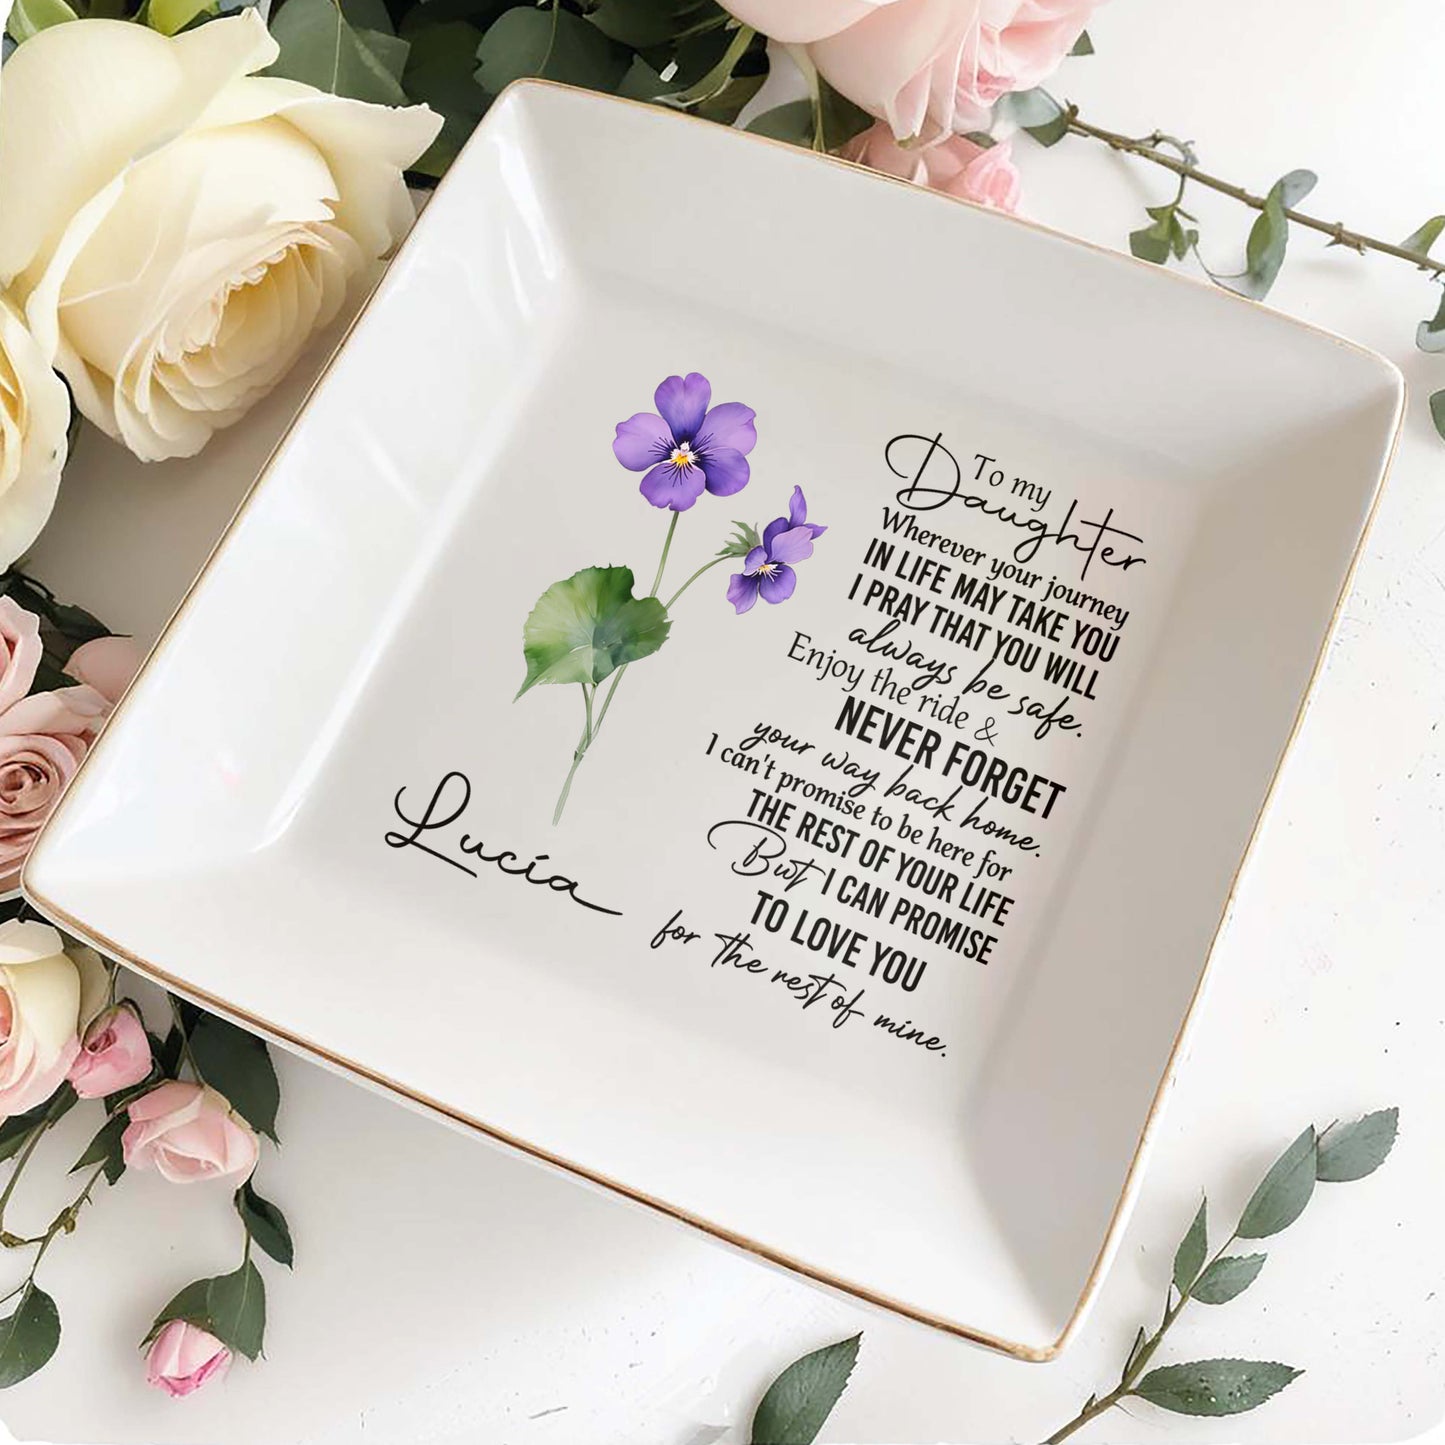 To my
Daughter
Wherever your journey
IN LIFE MAY TAKE YOU
I PRAY THAT YOU WILL
always be safe.
Enjoy the ride &
NEVER FORGET
your way back home.
I can't promise to be here for
THE REST OF YOUR LIFE
But I CAN PROMISE
TO LOVE YOU
for the rest of mine.
Lucía